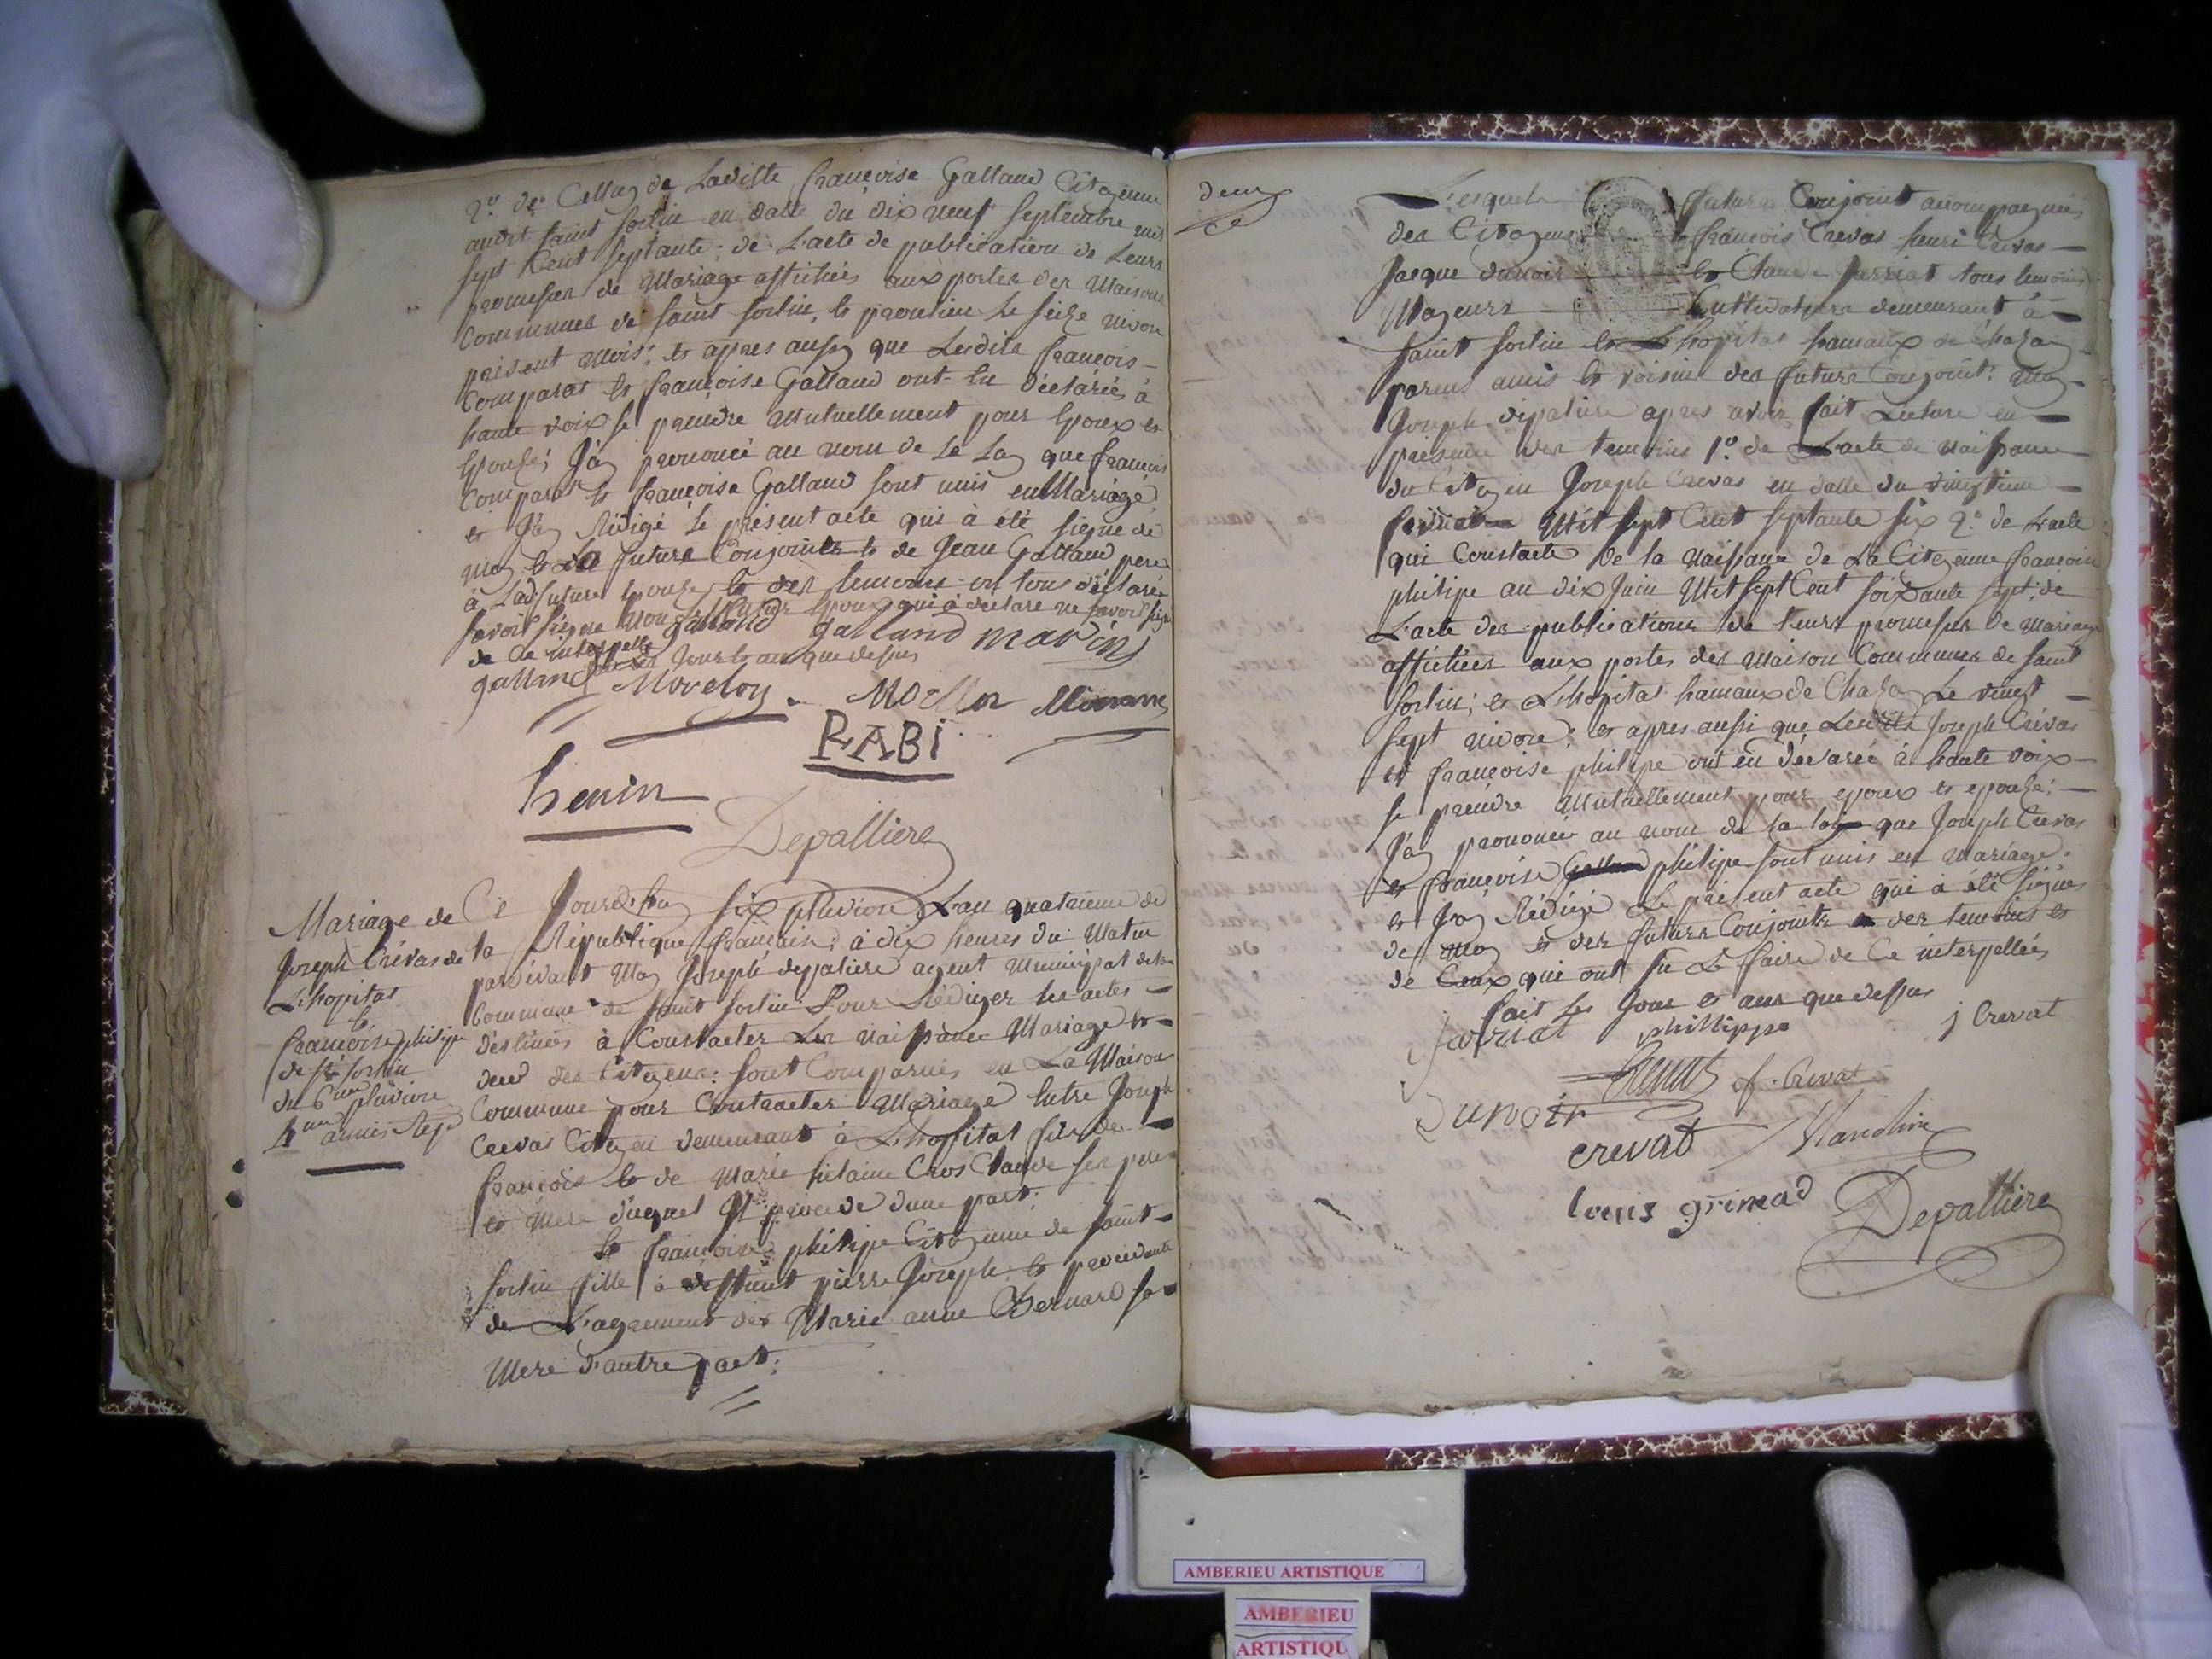 2.º de Celluy de Ladiste françoise Galland Citoyenne
audit saint sorlin en datte du dix neuf septembre mil
sept Cent septante: de L'acte de publication de Leurs
promesses de Mariage affichées aux portes des Maisons
Communes de saint sorlin, le seize nivose
présent mois; et apres aussy que Lesdits françois
Comparat et françoise Galland ont déclarés à
haute voix se prendre Mutuellement pour Epoux et
Epouse; J'ay prononcé au nom de La Loy que françois
Comparat et françoise Galland sont unis en Mariage
et J'ay Rédigé Le présent acte qui à été signé de
moy et La future Conjointe et de Jean Galland pere
à Lad. future Epouse et des temoins on tous déclarés
savoir signer non Epoux qui à déclaré ne savoir signer
de Ce interpellé galland galland marin
galland Jour et an que dessus
Morelon
RABI
henin
Depalliere
Mariage de
Joseph Crévas de
L'hopital
et
françoise philipe
de st sorlin
du 6me pluviose
4me année Rep.
Ce Jourd'huy six pluviose L'an quatrieme de
la République française; à dix heures du Matin
pardevant Moy Joseph depaliere agent Municipal de la
Commune de saint sorlin Pour Rédiger les actes
déstinés à Constater La naissance Mariage et
deces des Citoyens: sont Comparus en La Maison
Commune pour Contracter Mariage Entre Joseph
Crevas Citoyen demeurant à L'hopital fils de
françois et de Marie Cros Claude ses pere
et Mere duquel Il procede d'une part;
Et françoise philipe Citoyenne de saint
sorlin fille à deffunt pierre Joseph et procedante
de L'agrement de Marie anne Bernard sa
Mere d'autre part;
deux
Lesquels futurs Conjoint accompagnés
des Citoyens françois Crevas henri Crevas
Jacque dunoir et Claude Jarriat tous temoins
Majeurs Cultivateurs demeurant à
saint sorlin et L'hopital hamaux de Chazay
parens amis et voisins des futurs Conjoint: Moy
Joseph dipaliere apres avoir fait Lecture en
présence des temoins 1.º de L'acte de naissance
du Citoyen Joseph Crevas en datte du
Mil sept Cent septante six 2.º de L'acte
qui Constate de la Naissance de La Citoyenne francoise
philipe au dix Juin Mil sept Cent soixante sept: de
L'acte des publications de leurs promesses de Mariage
affichées aux portes des Maison Communes de saint
sorlin; et L'hopital hamaux de Chazay Le vingt
sept nivose; et apres aussi que Lesdits Joseph Crévas
et françoise philipe ont déclarée à haute voix
se prendre Mutuellement pour epoux et epouse;
J'ay prononcé au nom de la loy que Joseph Crevas
et françoise philipe sont unis en Mariage;
et J'ay Rédigé Le présent acte qui à été signés
de moy et des futurs Conjoints des temoins et
de Ceux qui ont su Le faire de Ce interpellés
fait Les Jour et ans que dessus
Jarriat phillippe j Crevat
f. Crevat
Dunoir
crevat
louis grimad Depalliere
AMBERIEU ARTISTIQUE
AMBERIEU
ARTISTIQU